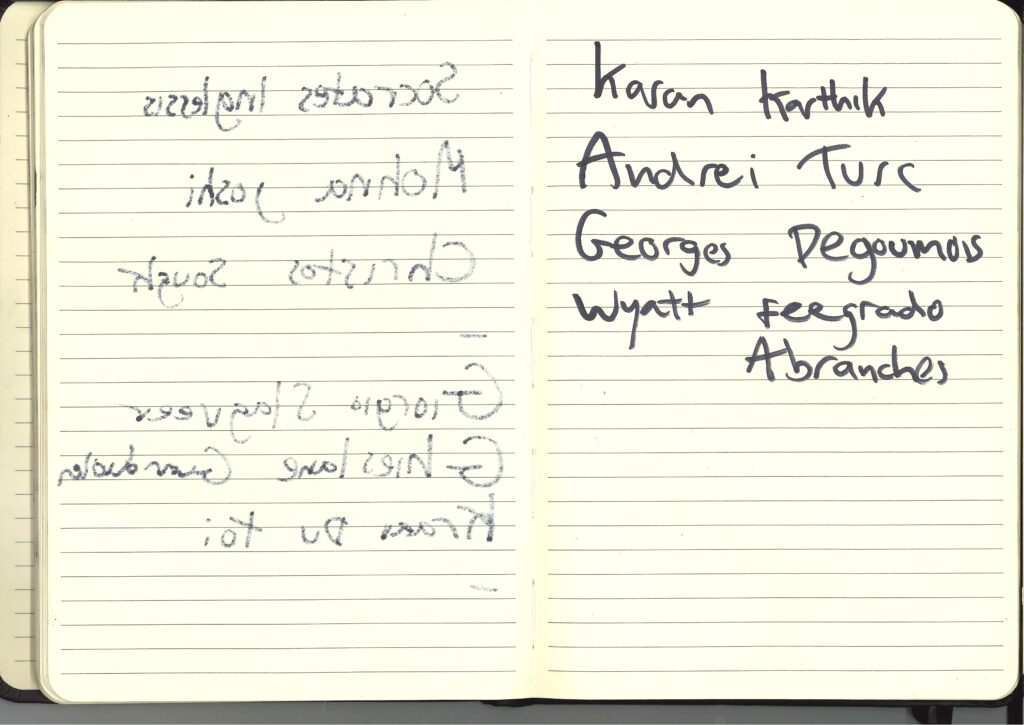 Socrates Inglessis
Mohna Joshi
Christos Sought
Giorgio Slagveer
Ghieslane
Du toi
Karan Karthik
Andrei Turc
Georges Degoumois
Wyatt Feegrado
Abranches